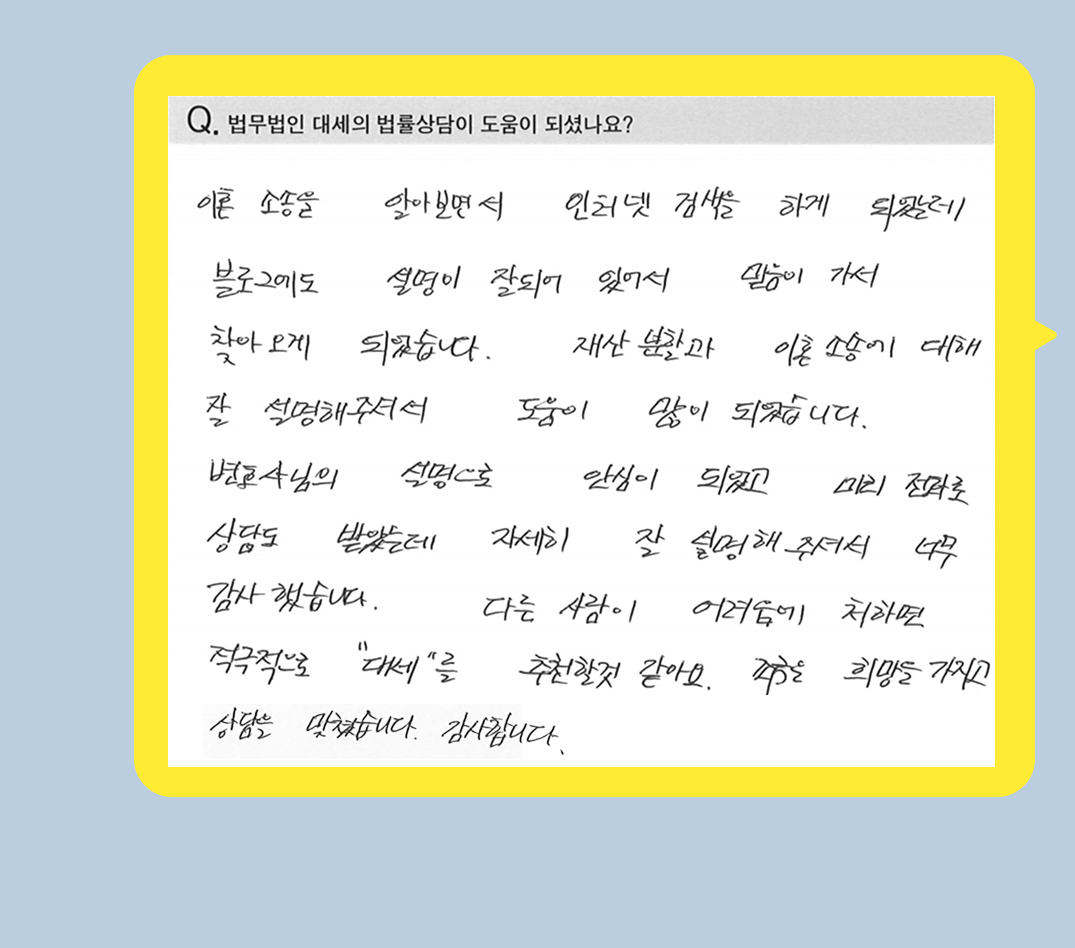 Q. 법무법인 대세의 법률상담이 도움이 되셨나요?
이혼 소송을 알아보면서 인터넷 검색을 하게 되었는데
블로그에도 설명이 잘되어 있어서 믿음이 가서
찾아오게 되었습니다. 재산분할과 이혼소송에 대해
잘 설명해주셔서 도움이 많이 되었습니다.
변호사님의 설명으로 안심이 되었고 미리 전화로
상담도 받았는데 자세히 잘 설명해주셔서 너무
감사했습니다. 다른 사람이 어려움에 처하면
적극적으로 "대세"를 추천할것 같아요. 희망을 가지고
상담을 마쳤습니다. 감사합니다.